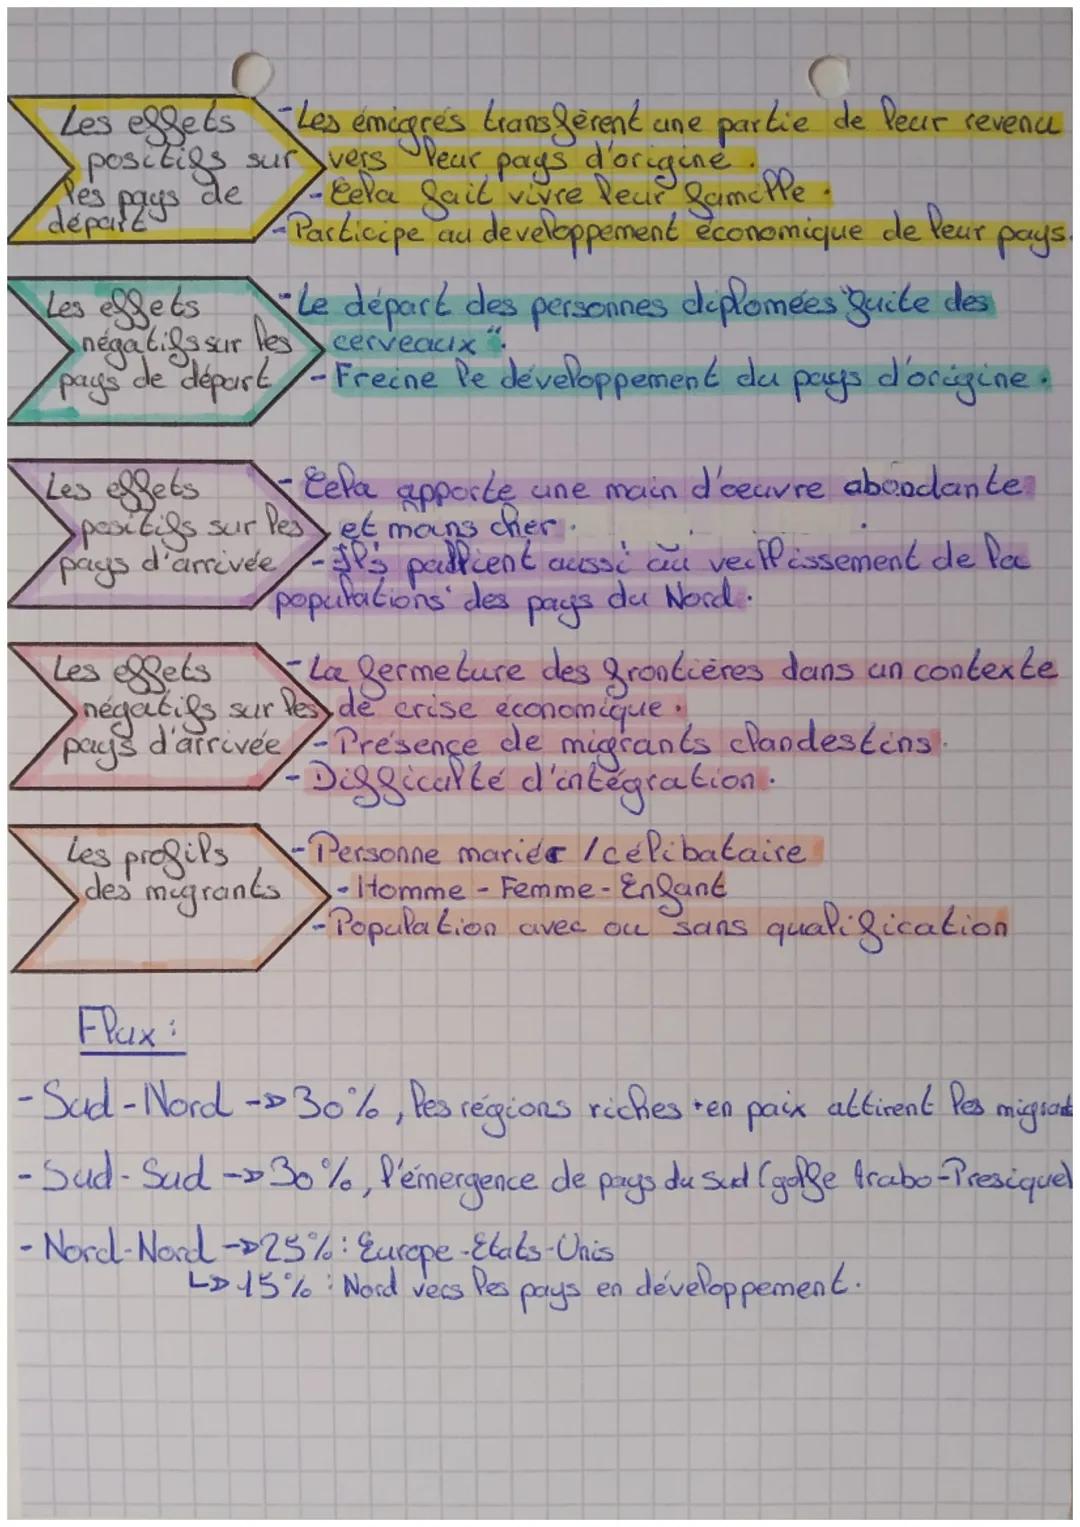 Les effets
positifs sur
les pays de
départ
- Les émigrés transfèrent une partie de leur revenu
vers leur pays d'origine.
- Cela fait vivre leur famille.
- Participe au developpement économique de leur pays.
Les effets
négatifs sur les
pays de départ
- Le départ des personnes diplomées "fuite des
cerveaux".
- Freine le développement du pays d'origine.
Les effets
positifs sur les
pays d'arrivée
- Cela apporte une main d'oeuvre abondante
et moins cher.
- Ils pallient aussi au veillissement de la
populations des pays du Nord.
Les effets
négatifs sur les
pays d'arrivée
- La fermeture des frontières dans un contexte
de crise économique.
- Présence de migrants clandestins.
- Difficulté d'intégration.
Les profils
des migrants
- Personne mariée / célibataire
- Homme - Femme - Enfant
- Population avec ou sans qualification
Flux :
- Sud - Nord -> 30%, les régions riches + en paix attirent les migrant
- Sud - Sud -> 30%, l'émergence de pays du sud (golfe Arabo-Presique)
- Nord-Nord -> 25% : Europe - Etats-Unis
↳ 15% : Nord vers les pays en développement.